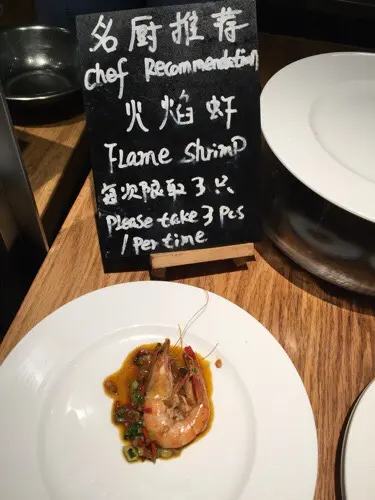 名厨推荐
Chef Recommendation
火焰虾
Flame Shrimp
每次限取3只
Please take 3 pcs
/Per time